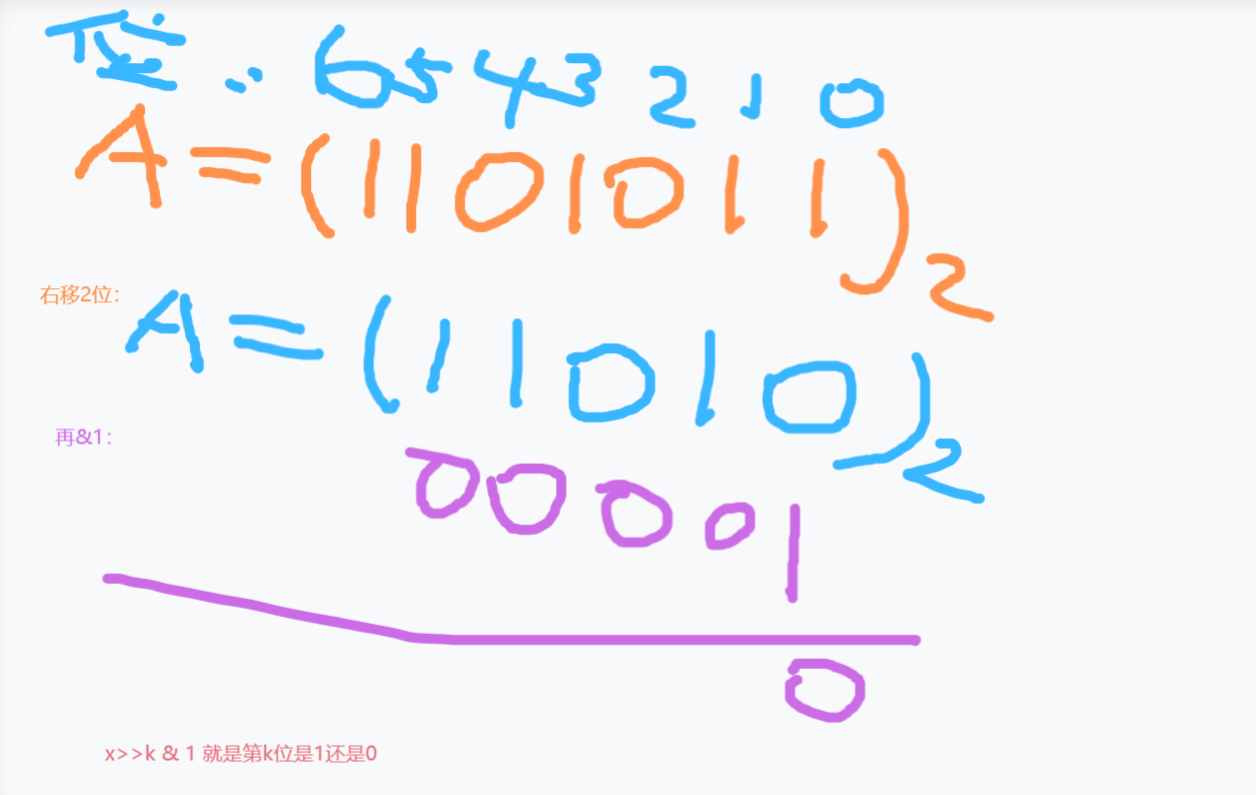 位: 6543210
A=(1101011)2
右移2位:
A=(11010)2
再&1:
00001
0
x>>k & 1 就是第k位是1还是0